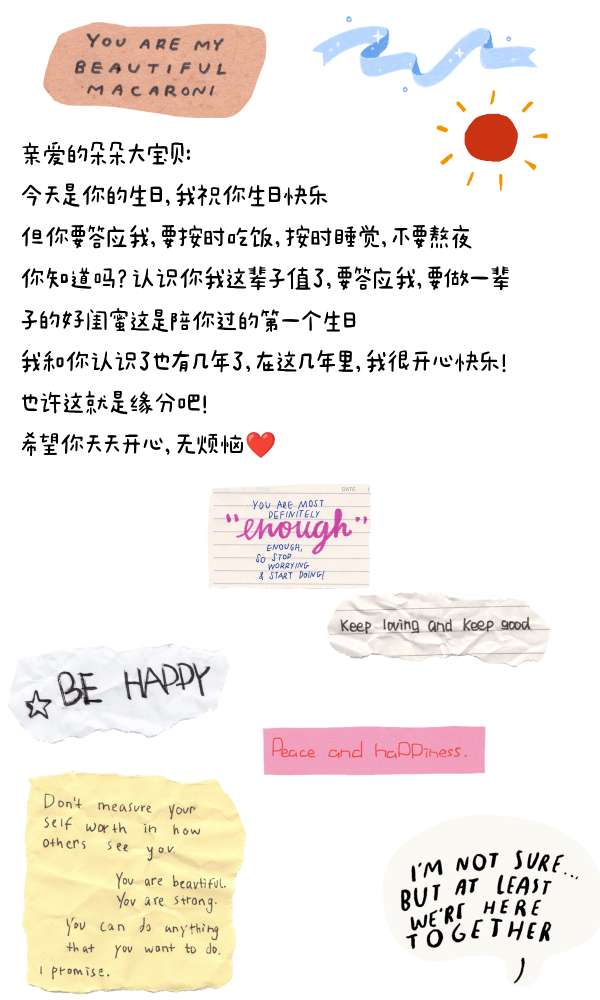 YOU ARE MY
BEAUTIFUL
MACARONI
亲爱的朵朵大宝贝:
今天是你的生日,我祝你生日快乐
但你要答应我,要按时吃饭,按时睡觉,不要熬夜
你知道吗?认识你我这辈子值了,要答应我,要做一辈
子的好闺蜜这是陪你过的第一个生日
我和你认识了也有几年了,在这几年里,我很开心快乐!
也许这就是缘分吧!
希望你天天开心,无烦恼❤️
DATE
YOU ARE MOST
DEFINITELY
"enough"
ENOUGH,
SO STOP
WORRYING
& START DOING!
Keep loving and keep good
BE HAPPY
Peace and haPPiness.
Don't measure your
self worth in how
others see you.
You are beautiful.
You are strong.
You can do anything
that you want to do.
I promise.
I'M NOT SURE...
BUT AT LEAST
WE'RE HERE
TOGETHER